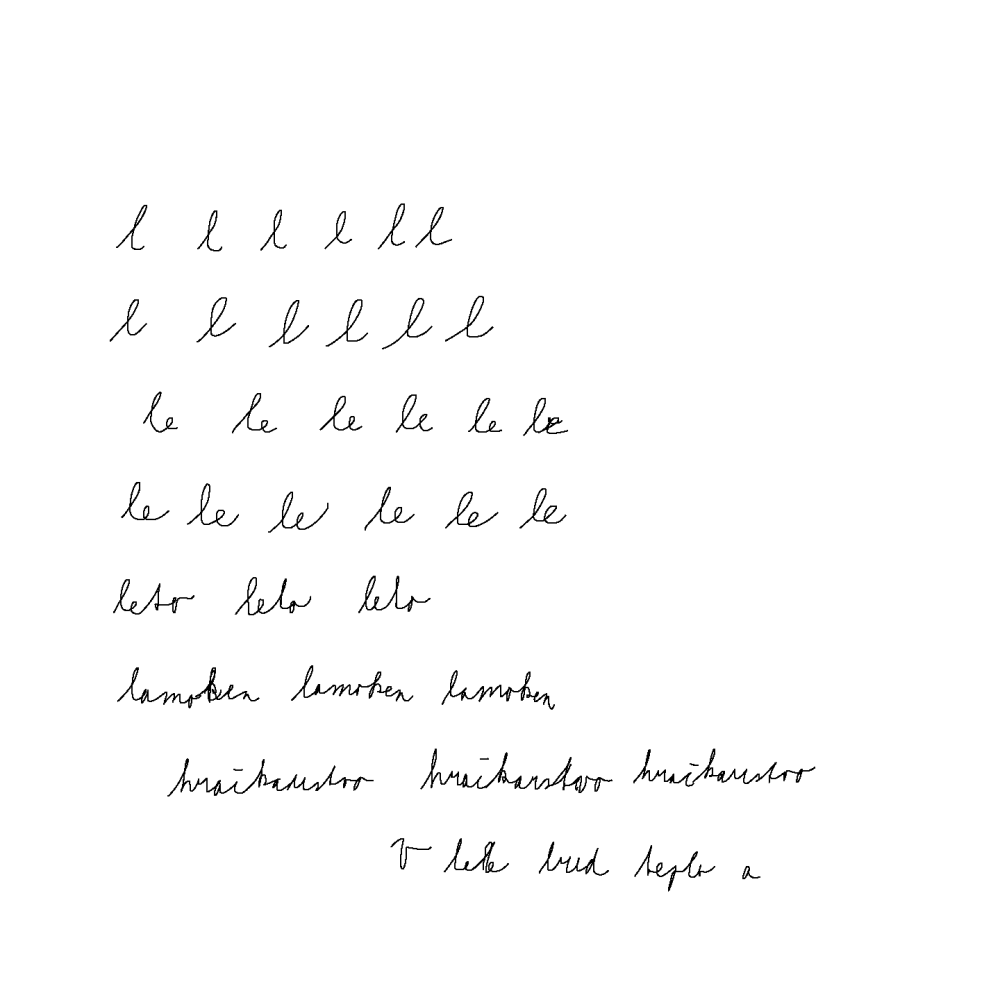 l l l l l l
l l l l l l
le le le le le le
le le le le le le
leto leto leto
lamoken lamoken lamoken
hračkarstvo hračkarstvo hračkarstvo
V lete bud teplo a